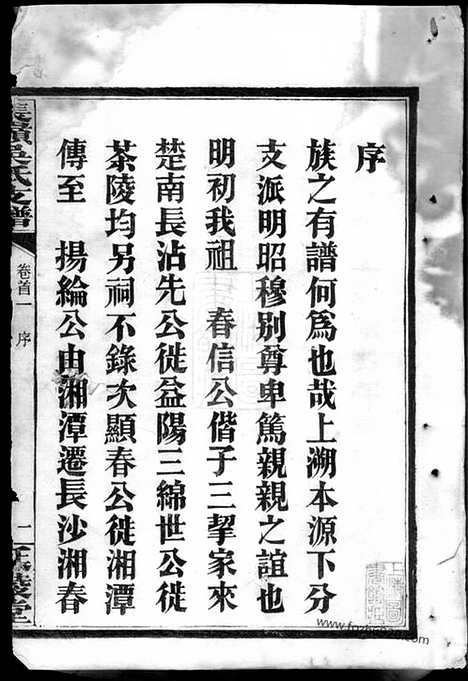 序
族之有譜何為也哉上溯本源下分
支派明昭穆別尊卑篤親親之誼也
明初我祖 春信公偕子三挈家來
楚南長沾先公徙益陽三綿世公徙
茶陵均另祠不錄次顯春公徙湘潭
傳至 揚綸公由湘潭遷長沙湘春
氏支譜
卷首一 序
一
堂